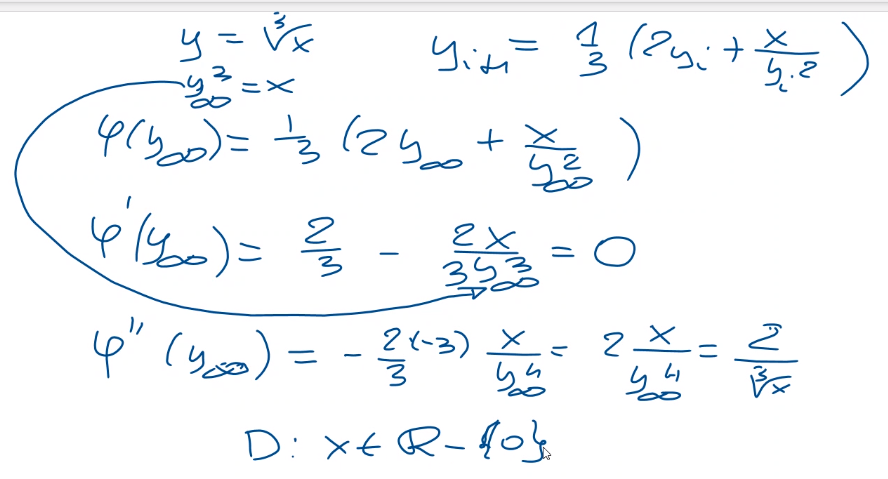 y = ∛x   y_{i+1} = 1/3 (2y_i + x/y_i²)
y_∞³ = x
φ(y_∞) = 1/3 (2y_∞ + x/y_∞²)
φ'(y_∞) = 2/3 - 2x/3y_∞³ = 0
φ''(y_∞) = - 2/3 (-3) x/y_∞⁴ = 2 x/y_∞⁴ = 2/∛x
D: x ∈ R - {0}